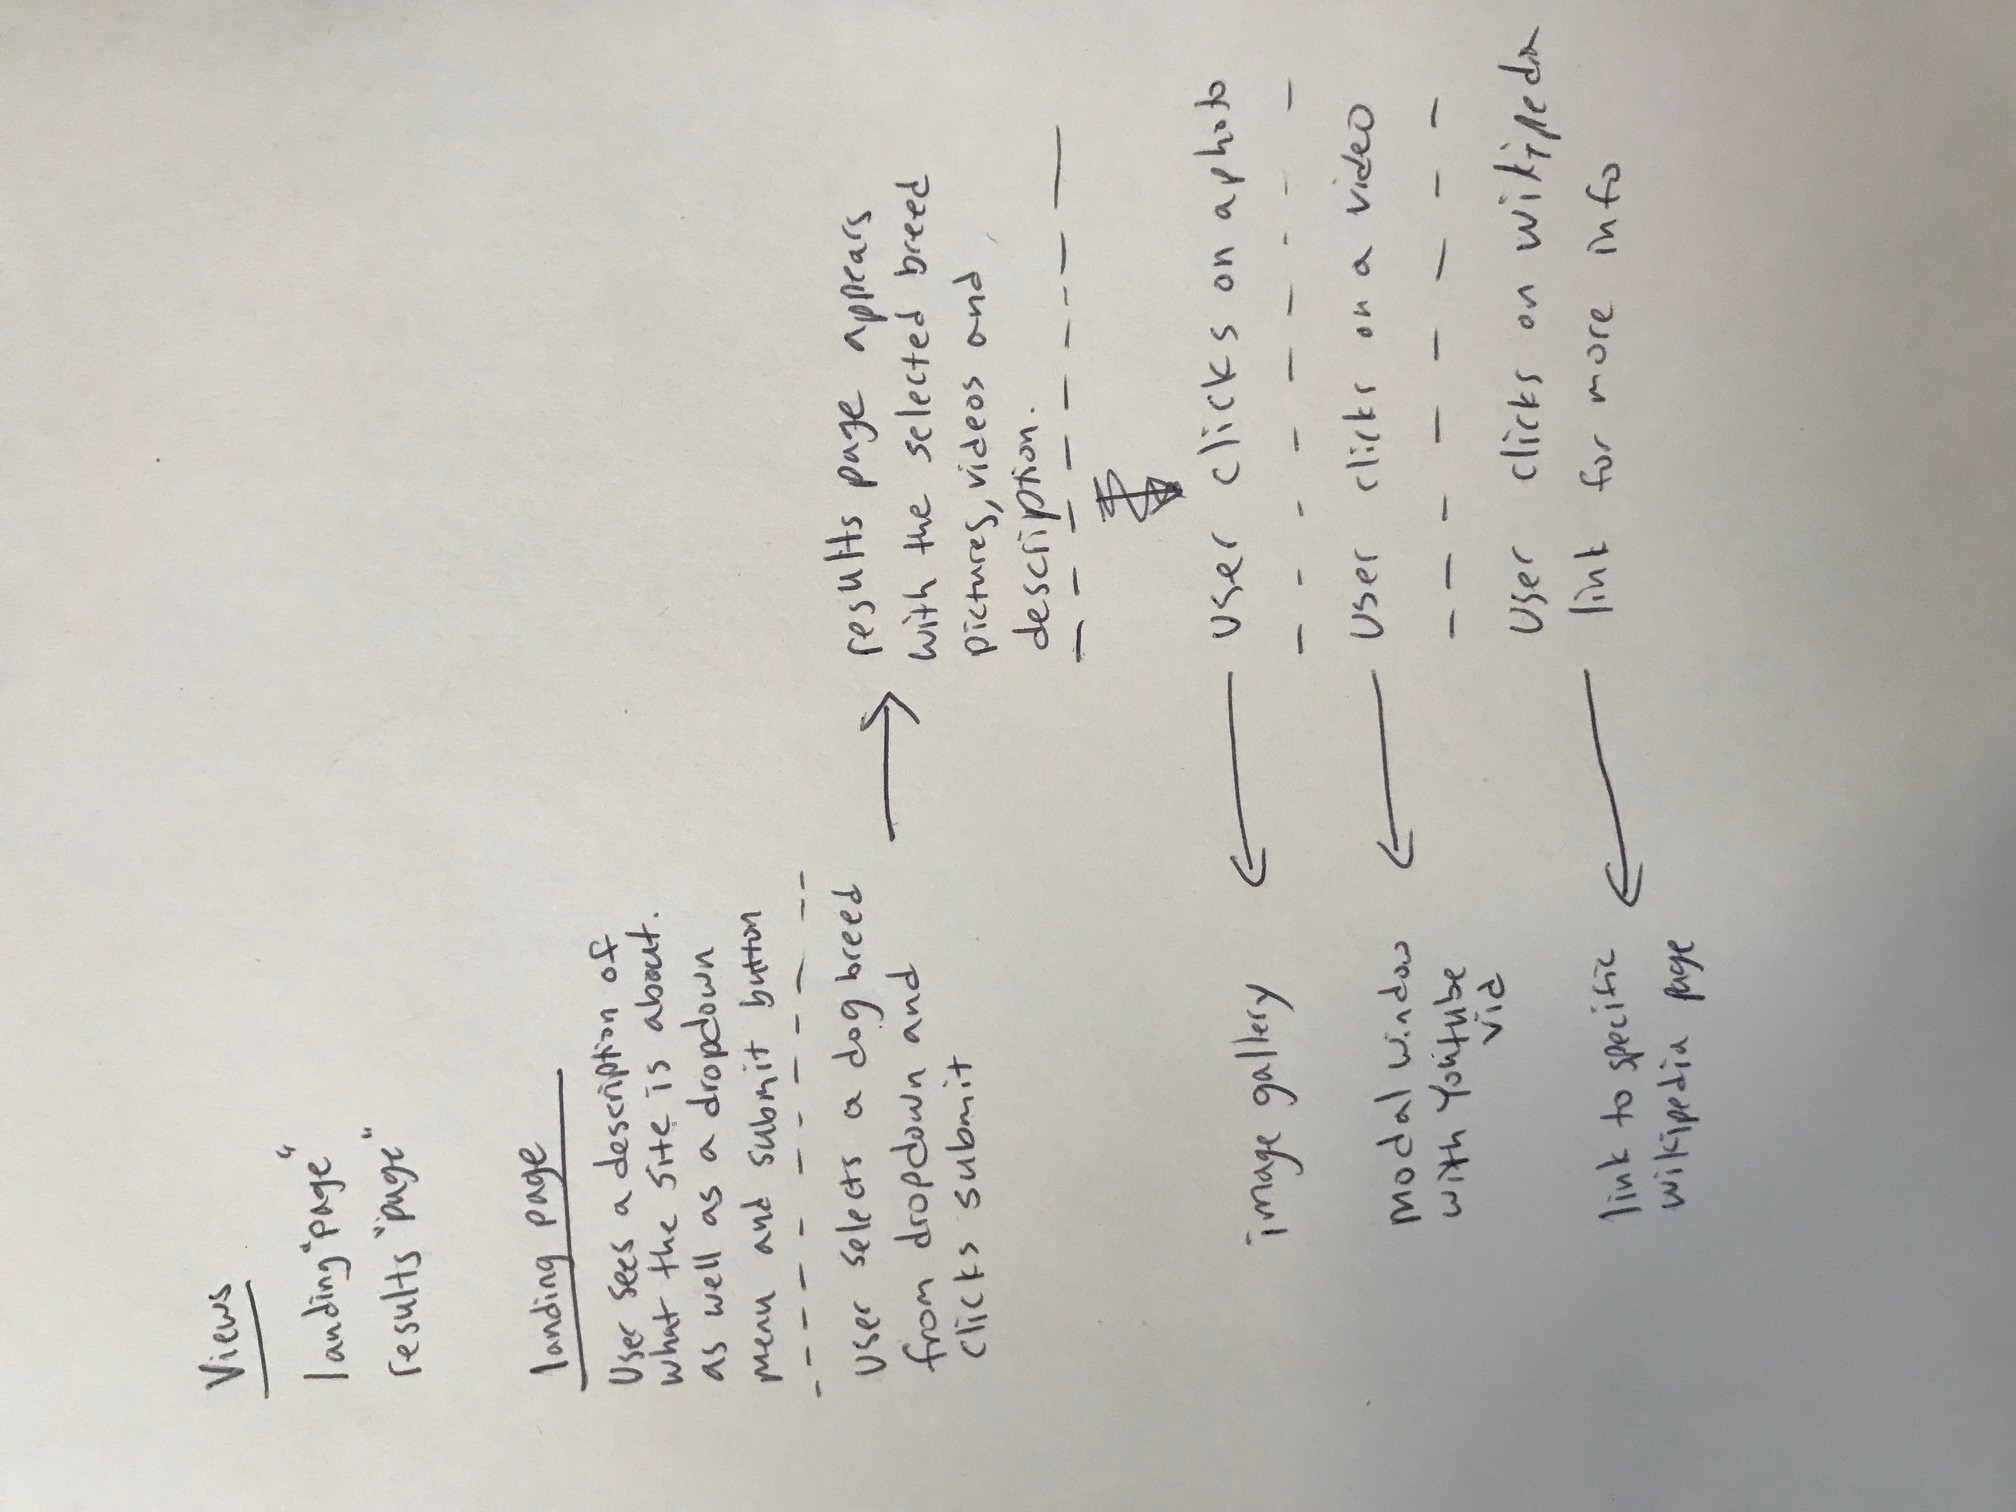 Views
landing "page"
results "page"
landing page
User sees a description of
what the site is about.
as well as a dropdown
menu and submit button
User selects a dog breed
from dropdown and
clicks submit
results page appears
with the selected breed
pictures, videos and
description.
User clicks on a photo
image gallery
User clicks on a video
modal window
with Youtube
vid
User clicks on wikipedia
link for more info
link to specific
wikipedia page